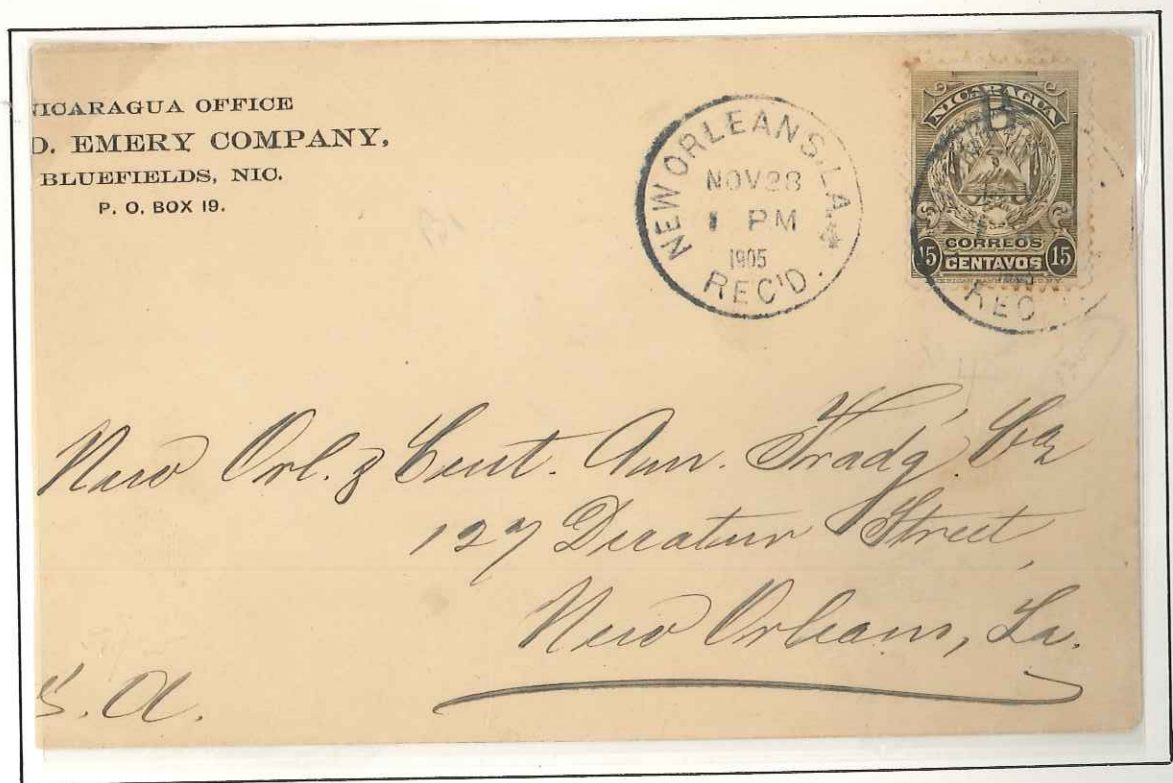 NICARAGUA OFFICE
D. EMERY COMPANY,
BLUEFIELDS, NIC.
P. O. BOX 19.
NEW ORLEANS, LA
NOV 28
1 PM
1905
REC'D.
NICARAGUA
B
CORREOS
15 CENTAVOS 15
REC
New Orl. & Cent. Am. Trad'g Co
127 Decatur Street
New Orleans, La.
S. A.